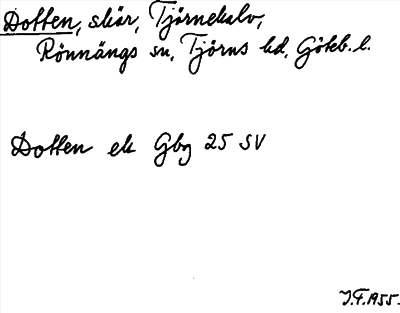 Dotten, skär, Tjörnekalv,
Rönnängs sn, Tjörns hd, Göteb. l.
Dotten ek Gbg 25 SV
J.F. 1955.